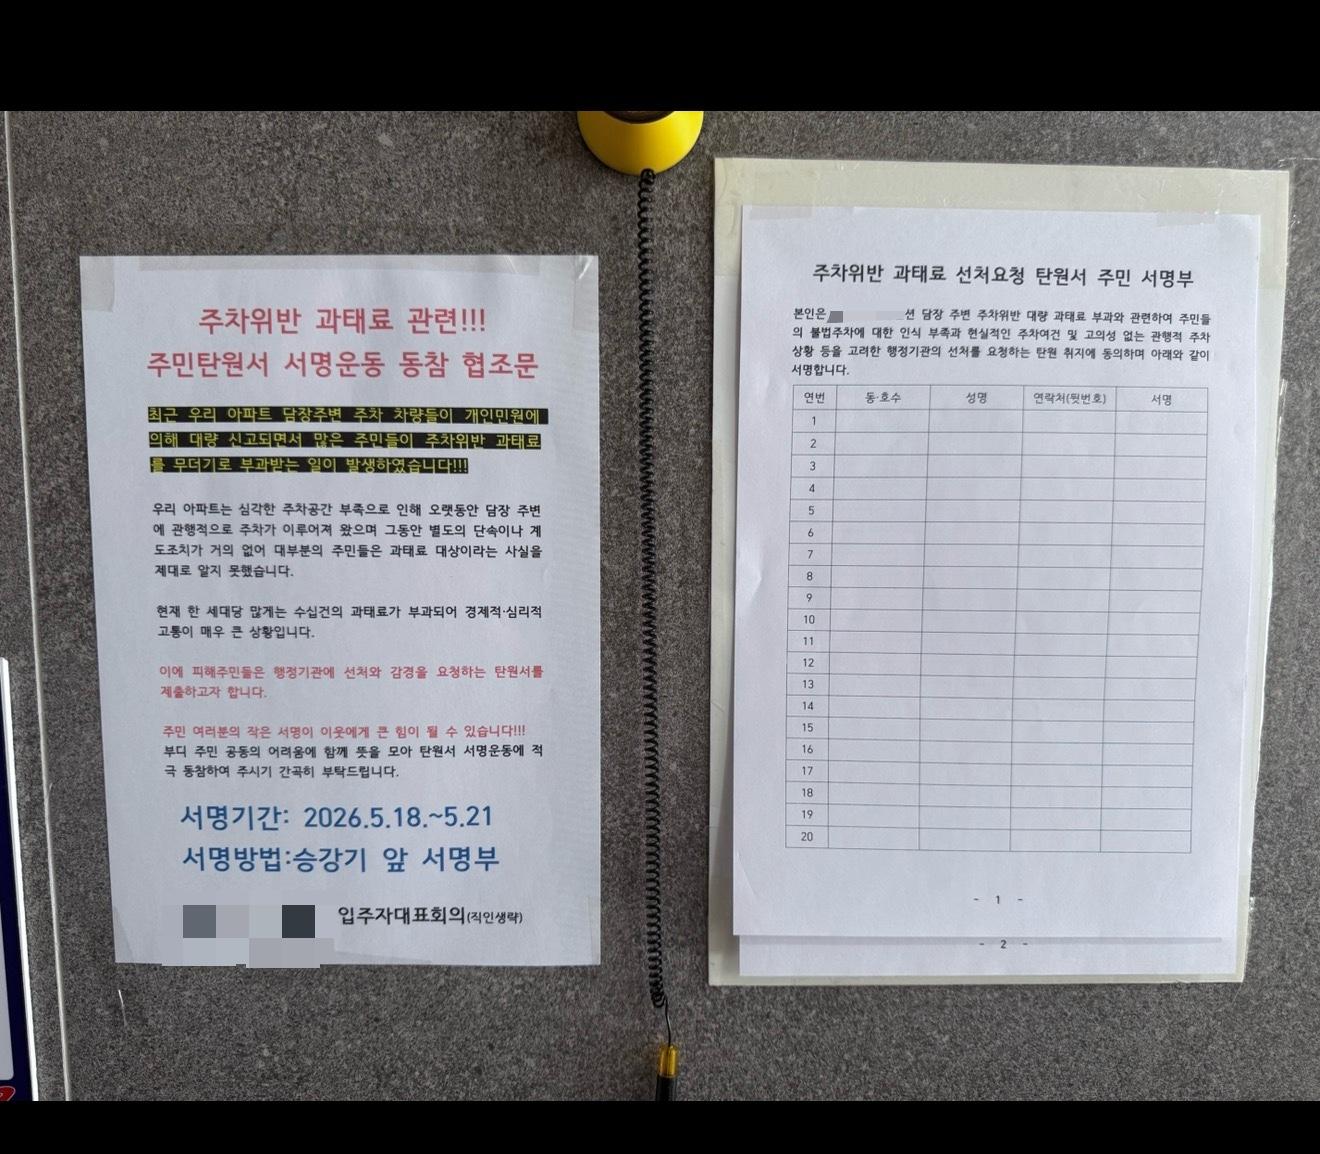 주차위반 과태료 관련!!!
주민탄원서 서명운동 동참 협조문
최근 우리 아파트 담장주변 주차 차량들이 개인민원에
의해 대량 신고되면서 많은 주민들이 주차위반 과태료
를 무더기로 부과받는 일이 발생하였습니다!!!
우리 아파트는 심각한 주차공간 부족으로 인해 오랫동안 담장 주변
에 관행적으로 주차가 이루어져 왔으며 그동안 별도의 단속이나 계
도조치가 거의 없어 대부분의 주민들은 과태료 대상이라는 사실을
제대로 알지 못했습니다.
현재 한 세대당 많게는 수십건의 과태료가 부과되어 경제적·심리적
고통이 매우 큰 상황입니다.
이에 피해주민들은 행정기관에 선처와 감경을 요청하는 탄원서를
제출하고자 합니다.
주민 여러분의 작은 서명이 이웃에게 큰 힘이 될 수 있습니다!!!
부디 주민 공동의 어려움에 함께 뜻을 모아 탄원서 서명운동에 적
극 동참하여 주시기 간곡히 부탁드립니다.
서명기간: 2026.5.18.~5.21
서명방법:승강기 앞 서명부
입주자대표회의(직인생략)
주차위반 과태료 선처요청 탄원서 주민 서명부
본인은 션 담장 주변 주차위반 대량 과태료 부과와 관련하여 주민들
의 불법주차에 대한 인식 부족과 현실적인 주차여건 및 고의성 없는 관행적 주차
상황 등을 고려한 행정기관의 선처를 요청하는 탄원 취지에 동의하며 아래와 같이
서명합니다.
연번 동·호수 성명 연락처(뒷번호) 서명
1
2
3
4
5
6
7
8
9
10
11
12
13
14
15
16
17
18
19
20
- 1 -
- 2 -